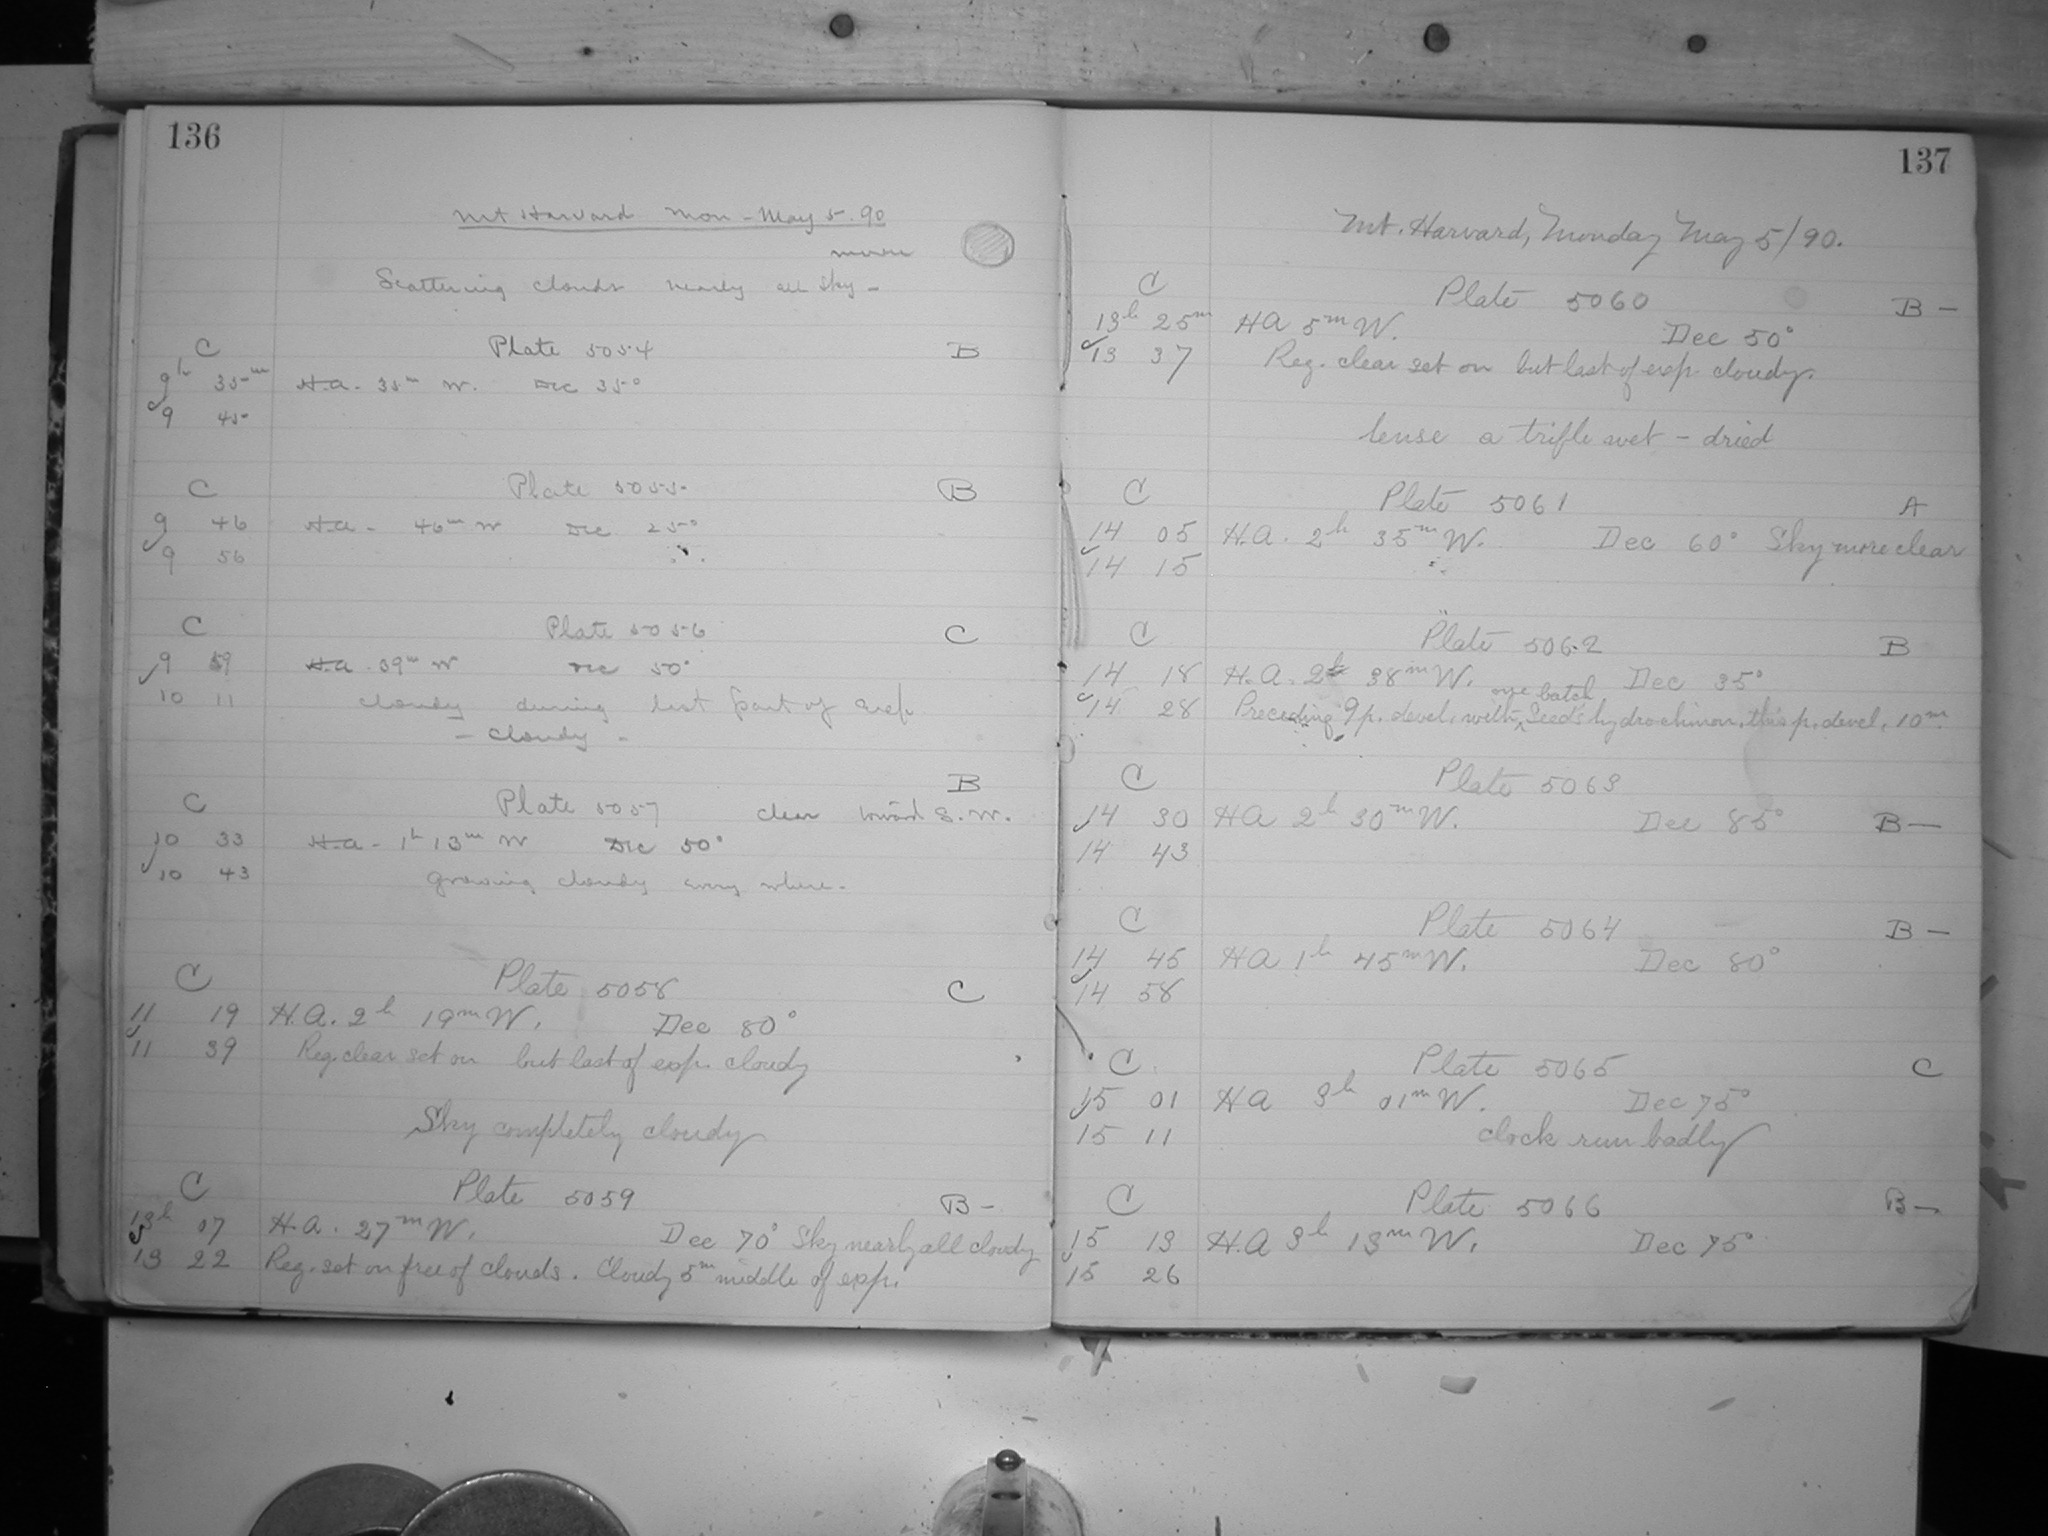 136
Mt Harvard Mon - May 5. 90
moon
Scattering clouds nearly all sky -
C Plate 5054 B
9h 35m H.A. 35m W. Dec 35°
9 45
C Plate 5055 B
9 46 H.A. - 46m W Dec 25°
9 56
C Plate 5056 C
9 59 H.A. 39m W Dec 50°
10 11 cloudy during last part of exp
- cloudy -
B
C Plate 5057 clear toward S.W.
10 33 H.A. - 1h 13m W Dec 50°
10 43 growing cloudy every where -
C Plate 5058 C
11 19 H.A. 2h 19m W. Dec 80°
11 39 Reg. clear set on but last of exp. cloudy
Sky completely cloudy
C Plate 5059 B -
13h 07 H.A. 27m W. Dec 70° Sky nearly all cloudy
13 22 Reg. set on free of clouds. Cloudy 5m middle of exp.
137
Mt. Harvard, Monday May 5/90.
C Plate 5060 B -
13h 25m HA 5m W. Dec 50°
13 37 Reg. clear set on but last of exp. cloudy.
lense a trifle wet - dried
C Plate 5061 A
14 05 H.A. 2h 35m W. Dec 60° Sky more clear
14 15
C Plate 5062 B
14 18 H.A. 2h 38m W. Dec 35°
one batch
14 28 Preceding 9 p. devel. with Seed's hydrochinon, this p. devel. 10m
C Plate 5063
14 30 HA 2h 30m W. Dec 85° B -
14 43
C Plate 5064 B -
14 45 HA 1h 45m W. Dec 80°
14 58
C Plate 5065 C
15 01 HA 3h 01m W. Dec 75°
15 11 clock run badly
C Plate 5066 B -
15 13 H.A 3h 13m W. Dec 75°
15 26